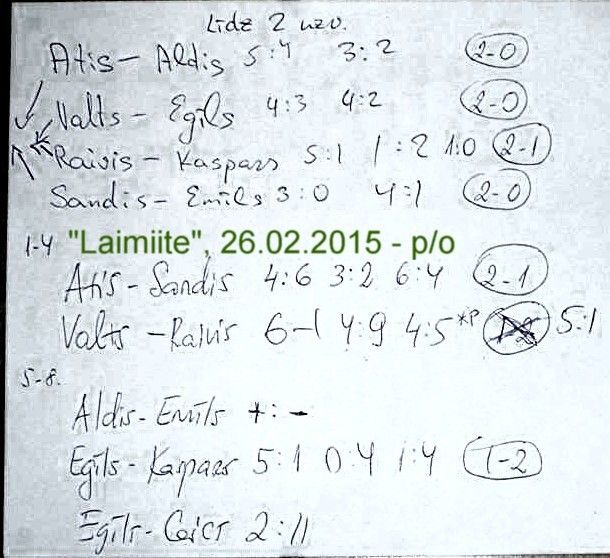 Līdz 2 uzv.
Atis - Aldis 5:4 3:2 2-0
Valts - Egils 4:3 4:2 2-0
Raivis - Kaspars 5:1 1:2 1:0 2-1
Sandis - Emīls 3:0 4:1 2-0
1-4 "Laimiite", 26.02.2015 - p/o
Atis - Sandis 4:6 3:2 6:4 2-1
Valts - Raivis 6-1 4:9 4:5 *P 5:1
5-8.
Aldis - Emīls + : -
Egīls - Kaspars 5:1 0:4 1:4 1-2
2:11